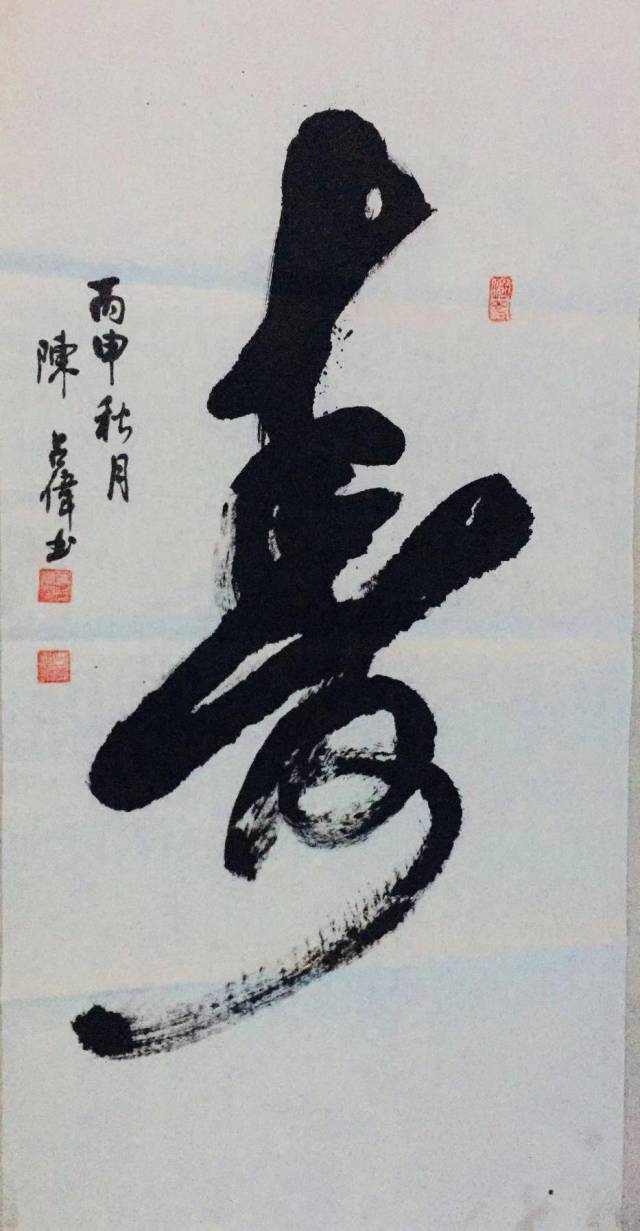 壽
丙申秋月
陳占偉书